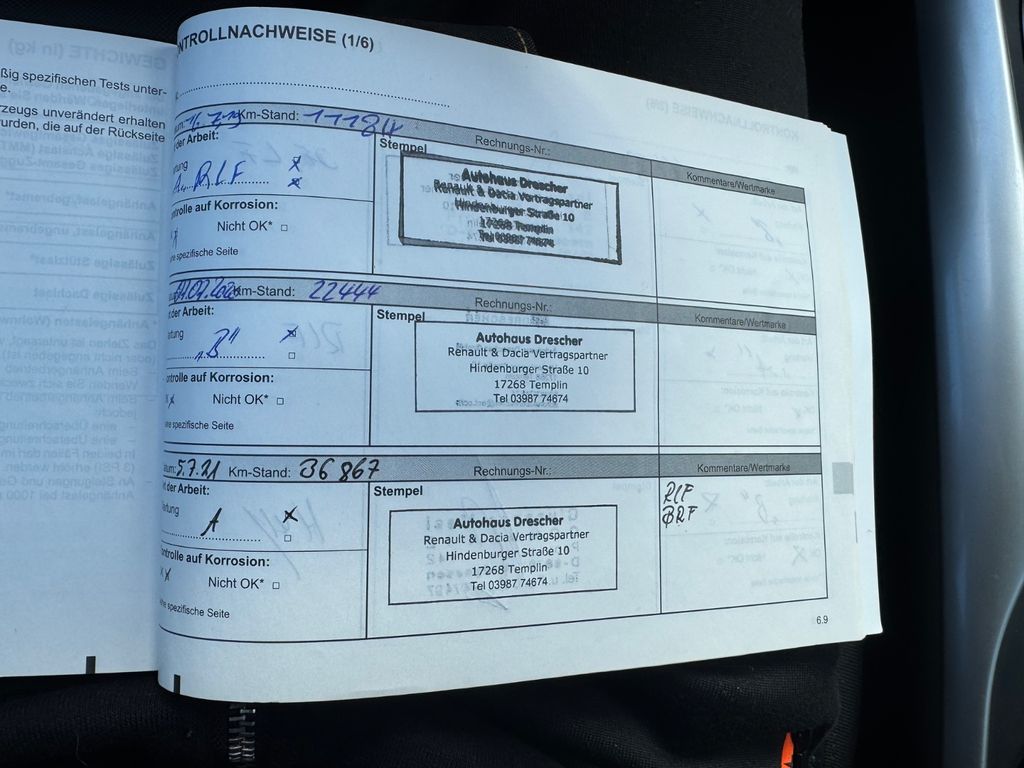 ßig spezifischen Tests unter-
e.
rzeugs unverändert erhalten
urden, die auf der Rückseite
NTROLLNACHWEISE (1/6)
Km-Stand: 11184
Rechnungs-Nr.:
Kommentare/Wertmarke
der Arbeit:
Stempel
A RLF
Autohaus Drescher
Renault & Dacia Vertragspartner
Hindenburger Straße 10
17268 Templin
Tel 03987 74674
ntrolle auf Korrosion:
Nicht OK*
ne spezifische Seite
Km-Stand: 22444
Rechnungs-Nr.:
Kommentare/Wertmarke
t der Arbeit:
Stempel
rtung
"B"
Autohaus Drescher
Renault & Dacia Vertragspartner
Hindenburger Straße 10
17268 Templin
Tel 03987 74674
ontrolle auf Korrosion:
Nicht OK*
ne spezifische Seite
tum: 5.7.21 Km-Stand: 36 867
Rechnungs-Nr.:
Kommentare/Wertmarke
t der Arbeit:
Stempel
rtung
A
RLF
BRF
Autohaus Drescher
Renault & Dacia Vertragspartner
Hindenburger Straße 10
17268 Templin
Tel 03987 74674
ontrolle auf Korrosion:
Nicht OK*
ne spezifische Seite
6.9